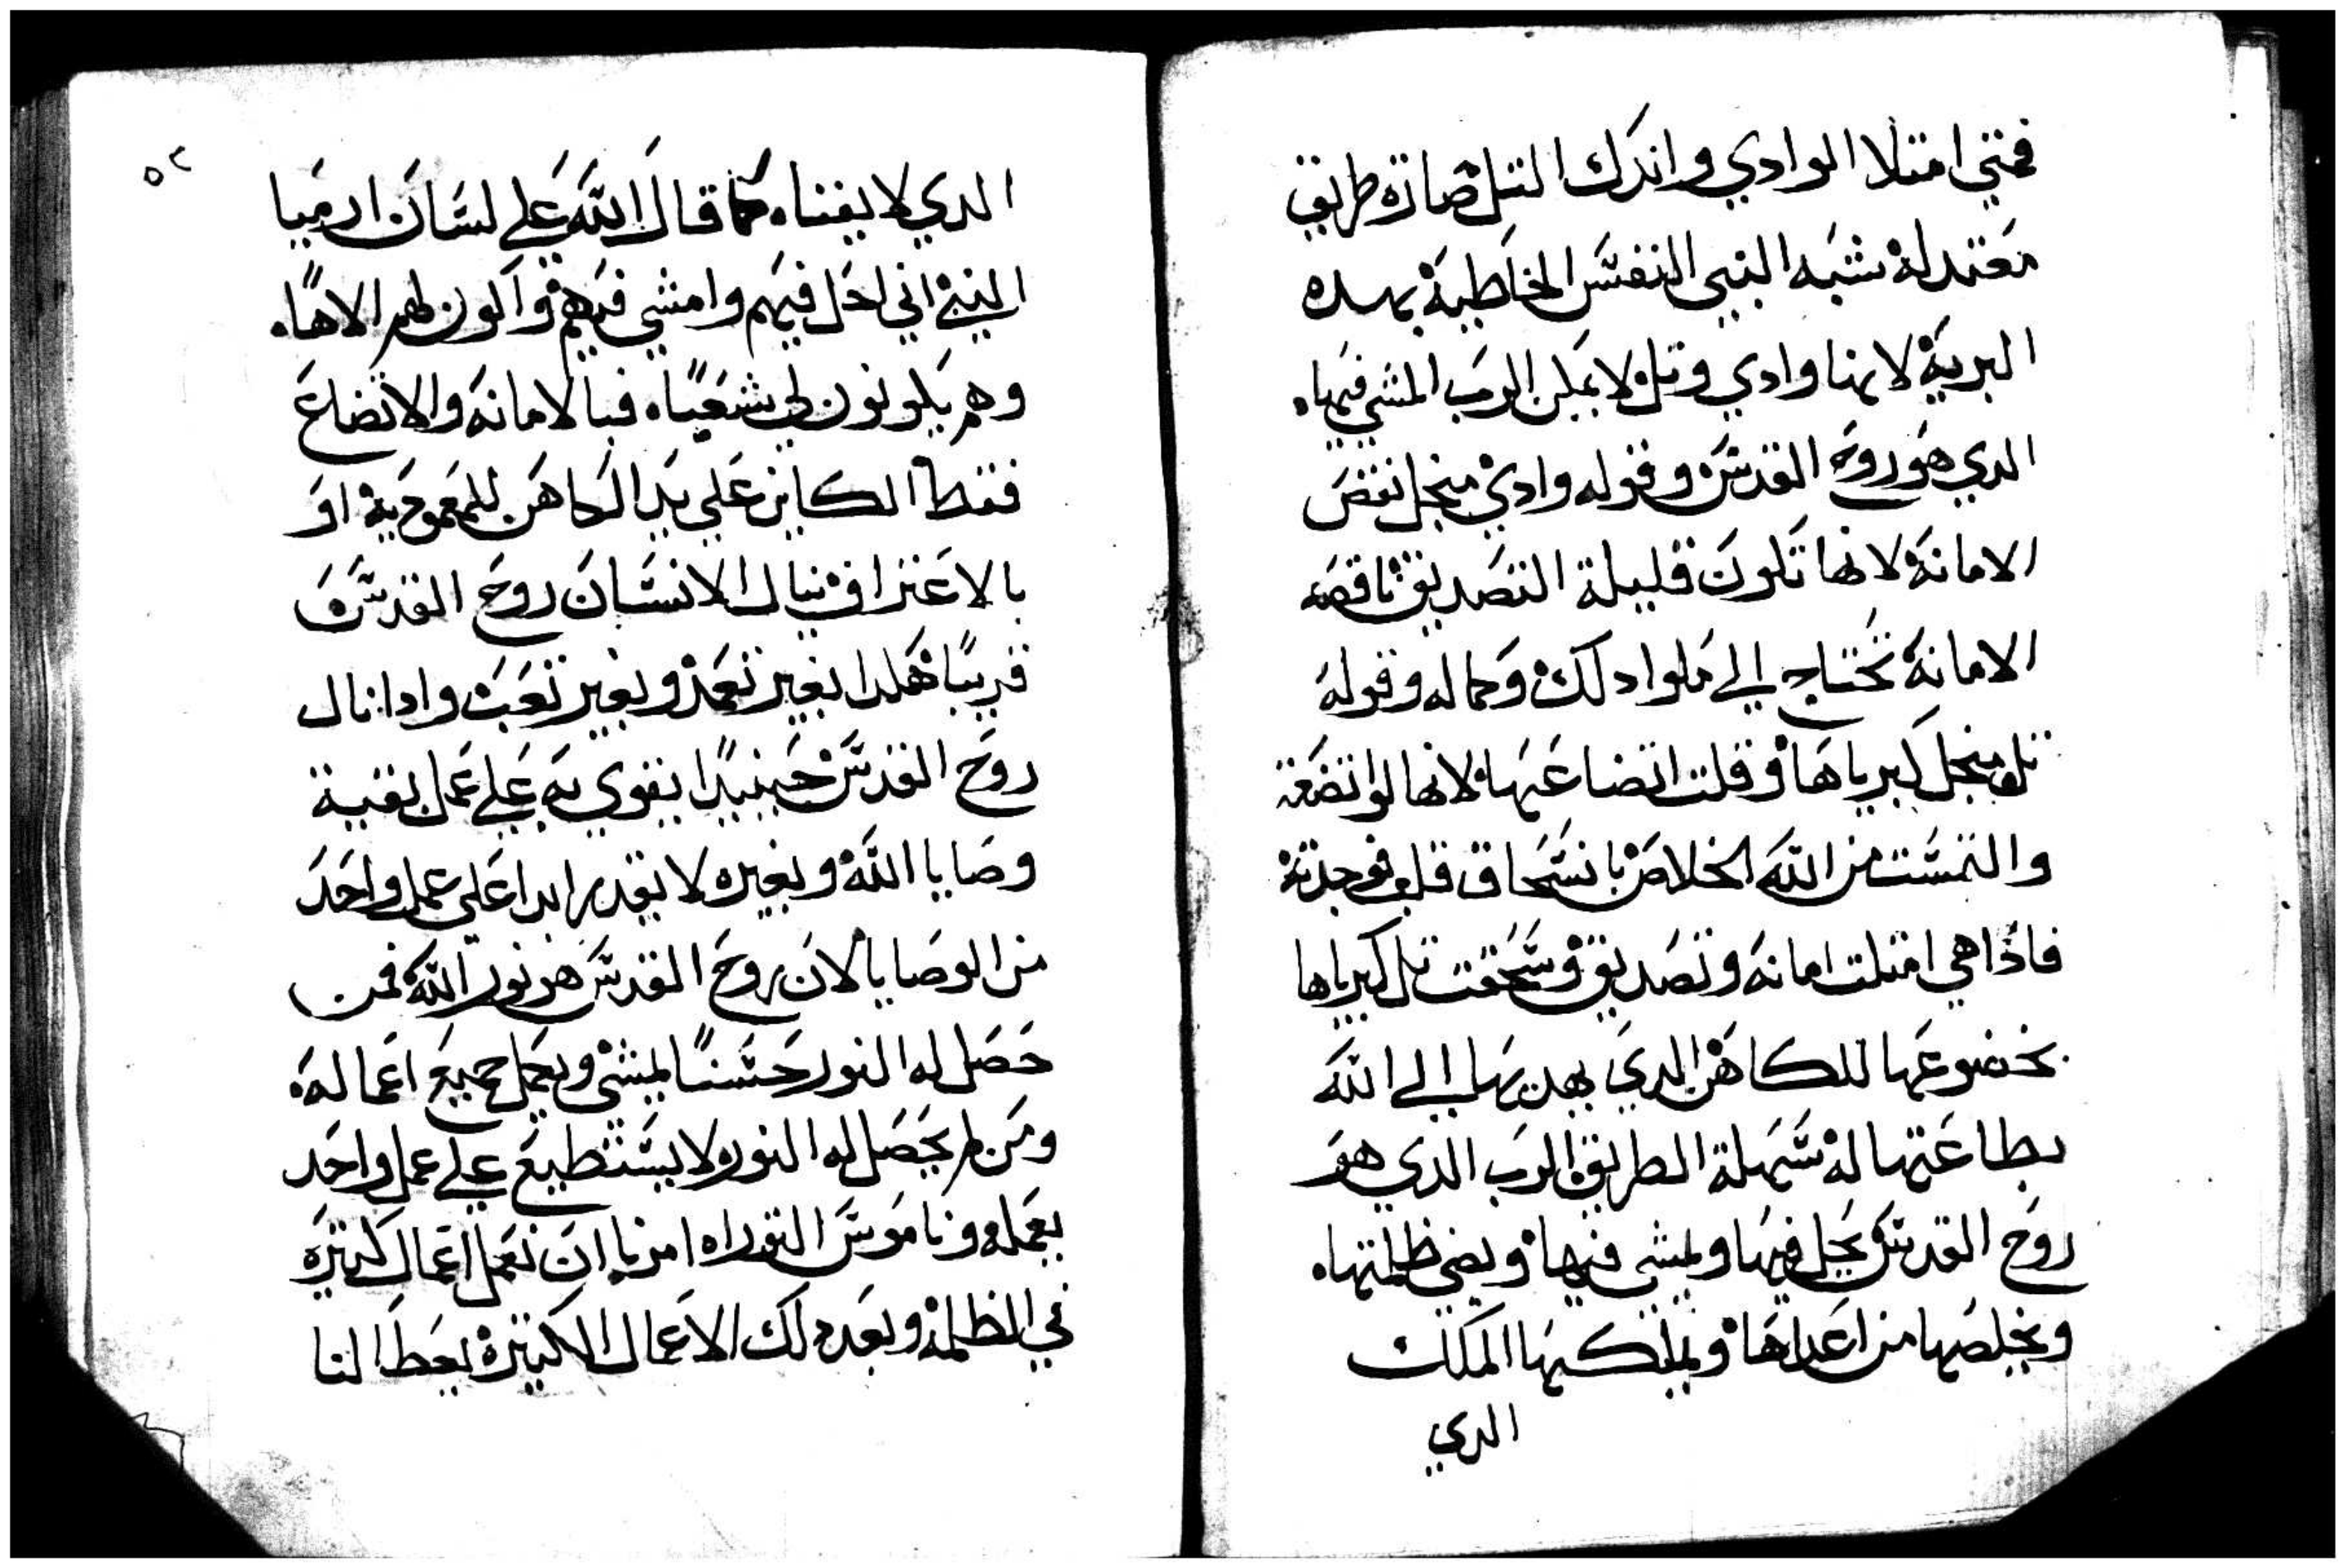 فمتي امتلا الوادي واندك التل صارة طريق
معتدله شبه النبي النفس الخاطية بهده
البرية لانها وادي وتل لا يمكن الرب المشي فيها.
الدي هو روح القدس وقوله وادي منجل نقض
الامانة لانها تكون قليلة التصديق ناقصه
الامانة تحتاج الي ملو ادلك وكماله وقوله
تل منجل كبرياها وقلت اتضاعها لانها لو اتضعة
والتمست من الله الخلاص بانسحاق قلب فوجدته
فاذا هي امتلت امانه وتصديق وسحقت تل كبرياها
بخضوعها للكاهن الدي يهديها الي الله
بطاعتها له سهلة الطريق الرب الدي هو
روح القدس يحل فيها ويمشي فيها ويضي ظلمتها.
ويخلصها من اعداها ويملكها الملك
الدي
٥٢
الدي لا يفنا. كما قال الله علي لسان ارميا
النبي اني احل فيهم وامشي فيهم واكون لهم الاهًا.
وهم يكونون لي شعبًا. فبالامانه والاتضاع
فقط الكاين علي يد الكاهن للمعمودية او
بالاعتراف ينال الانسان روح القدس
قريبًا هكدا بغير تعمد وبغير تعب وادا نال
روح القدس حينيدًا يقوي به علي عمل بقية
وصايا الله وبغيره لا يقدر ابدا علي عمل واحد
من الوصايا لان روح القدس هو نور الله فمن
حصل له النور حسنًا يمشي ويعمل جميع اعماله.
ومن لم يحصل له النور. لا يستطيع علي عمل واحد
يعمله وناموس التوراه امرنا ان نعمل اعمال كتيره
في الظلمة وبعد دلك الاعمال الكتيرة يعطا لنا